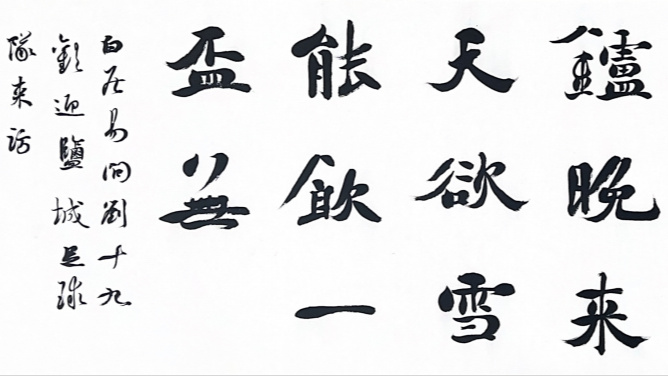 鑪晚来
天欲雪
能飲一
盃無
白居易問劉十九
歡迎鹽城足球
隊來訪